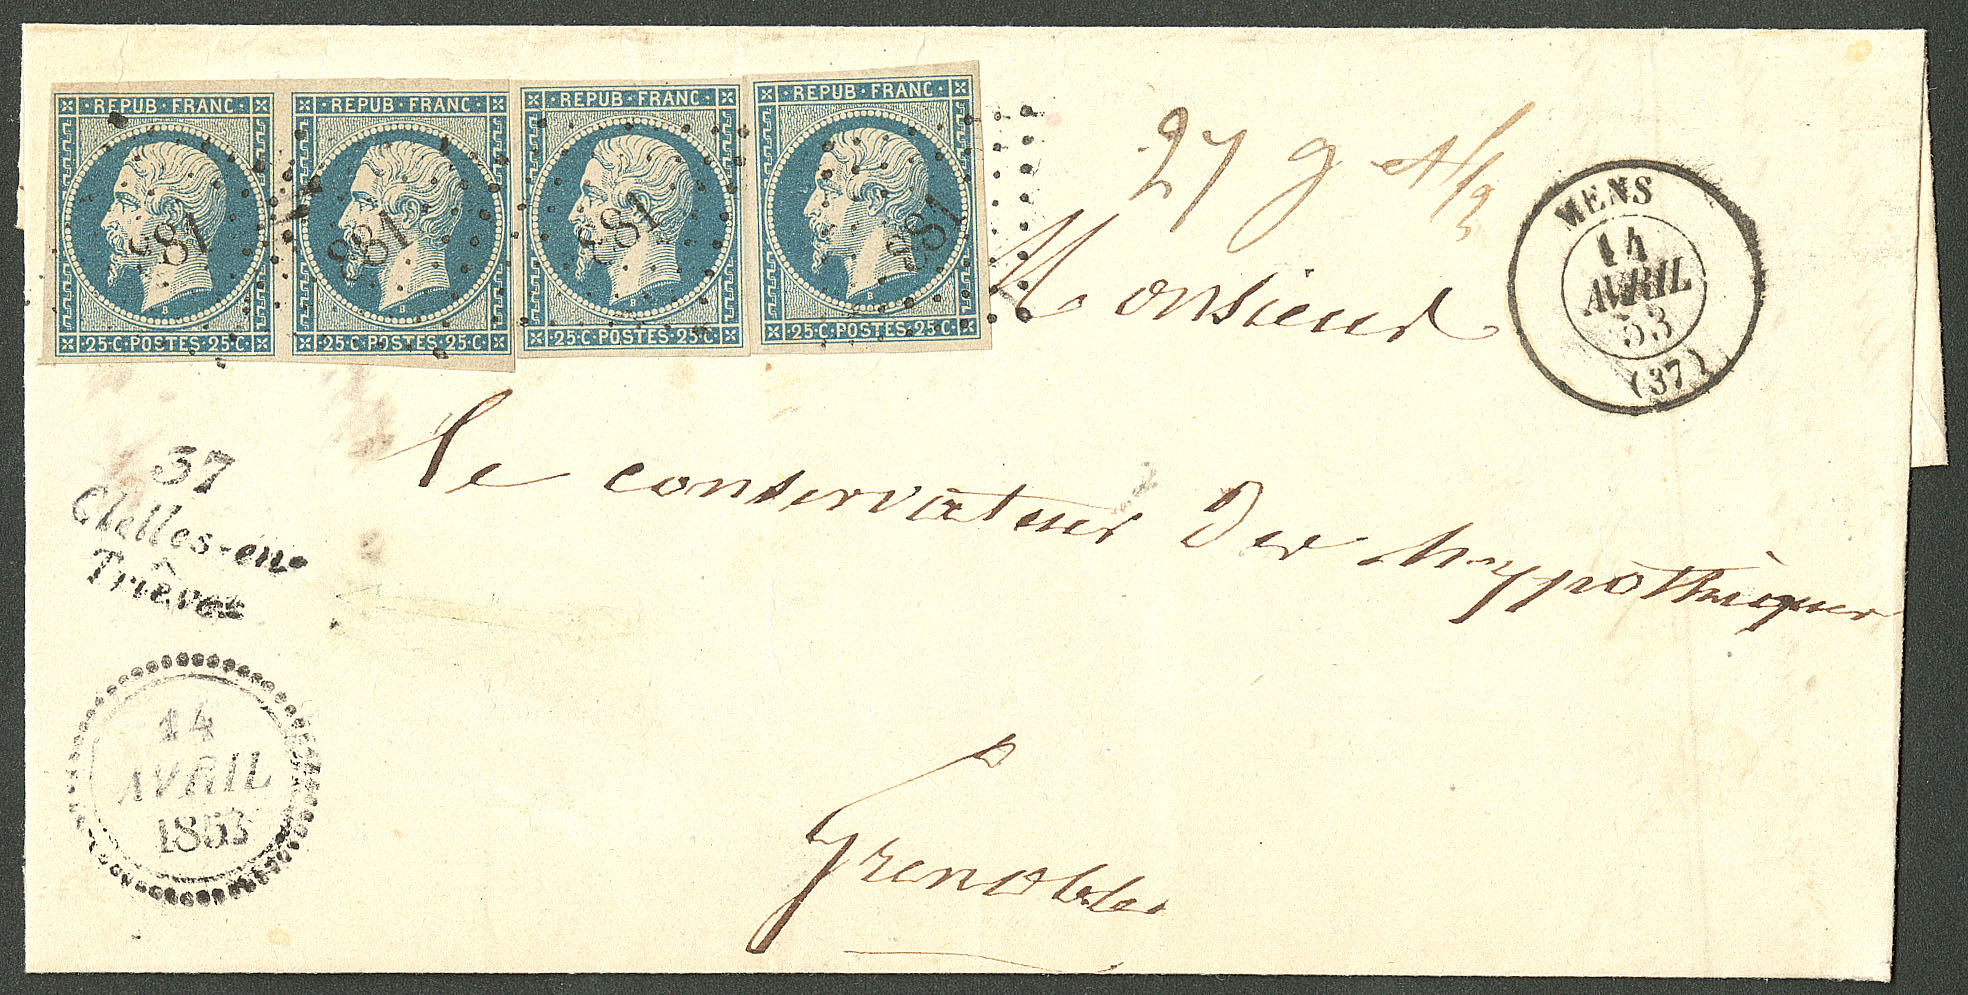 REPUB·FRANC·
REPUB·FRANC·
REPUB·FRANC·
REPUB·FRANC·
881
881
881
881
B
B
B
B
25·C·POSTES·25·C·
25·C·POSTES·25·C·
25·C·POSTES·25·C·
25·C·POSTES·25·C·
27 g et 1/2
MENS
14
AVRIL
53
(37)
Monsieur
37
Clelles-en-
Trièves
le conservateur des hypothèques
14
AVRIL
1853
Grenoble